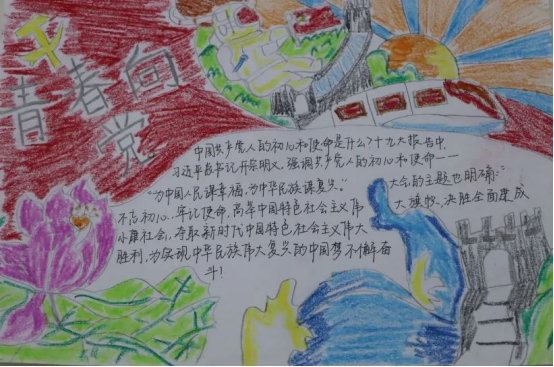 青春向
党
中国共产党人的初心和使命是什么?十九大报告中,
习近平总书记开宗明义,强调共产党人的初心和使命——
"为中国人民谋幸福,为中华民族谋复兴。"
大会的主题也明确:"
不忘初心,牢记使命,高举中国特色社会主义伟
大旗帜,决胜全面建成
小康社会,夺取新时代中国特色社会主义伟大
胜利,为实现中华民族伟大复兴的中国梦不懈奋
斗!